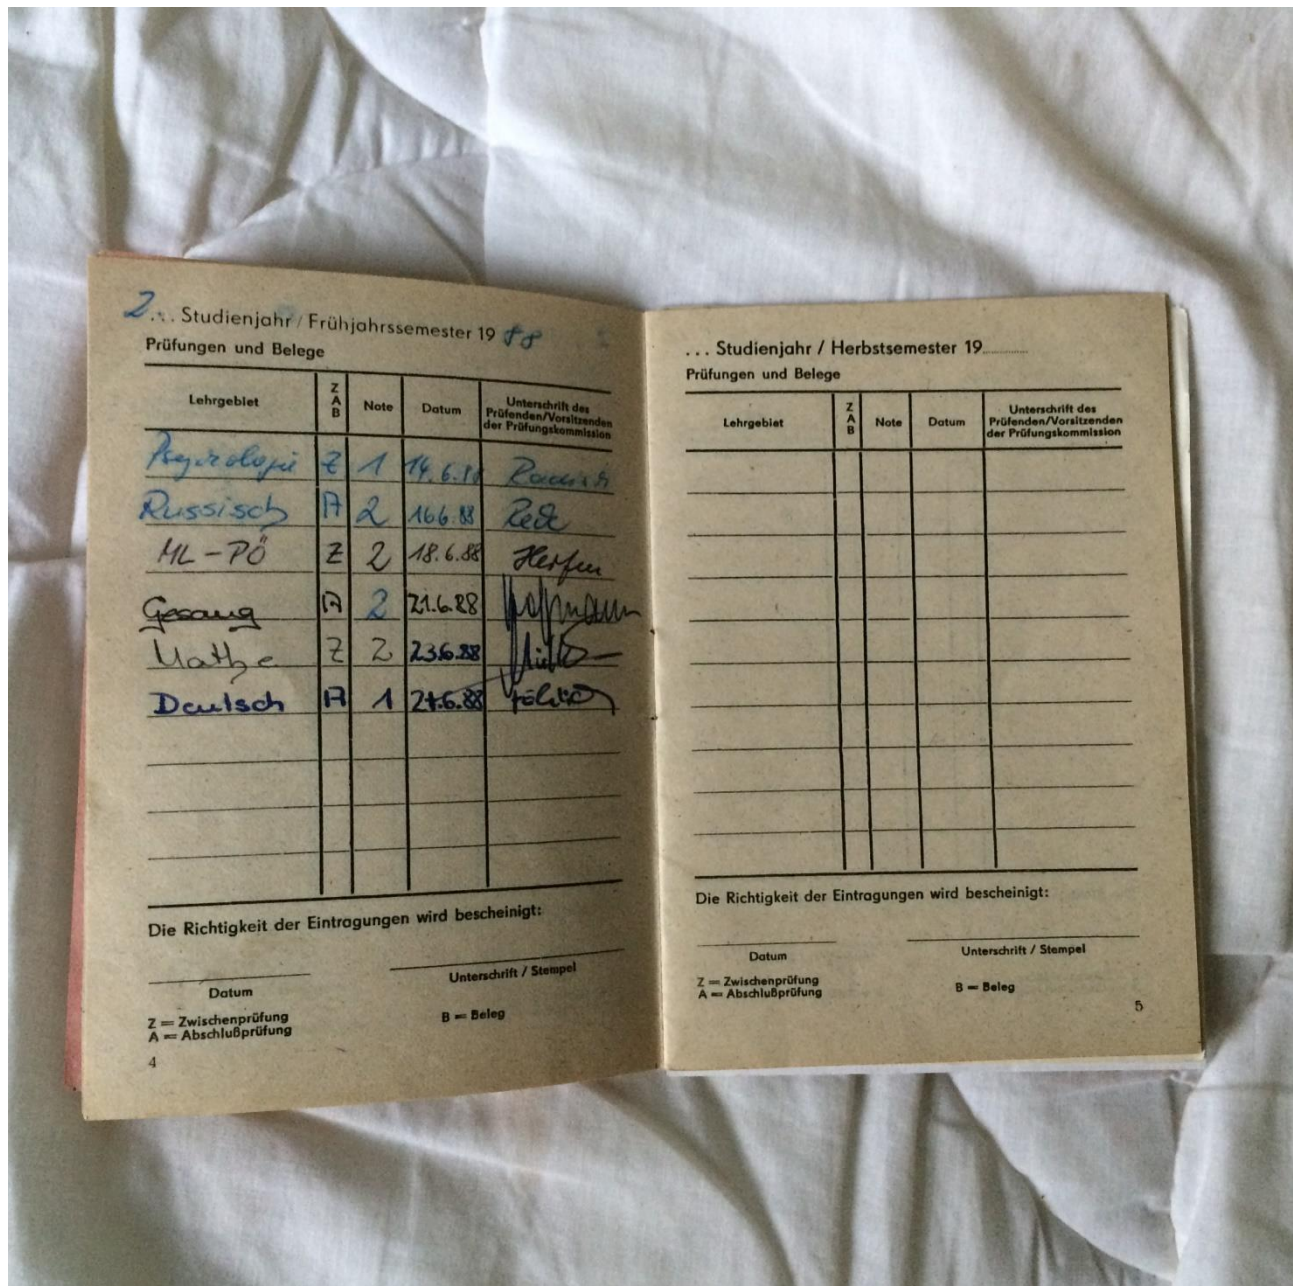 2... Studienjahr / Frühjahrssemester 19 88
Prüfungen und Belege
Lehrgebiet Z A B Note Datum Unterschrift des Prüfenden/Vorsitzenden der Prüfungskommission
Psychologie Z 1 14.6.88
Russisch A 2 16.6.88
ML-PÖ Z 2 18.6.88
Gesang A 2 21.6.88 Hoffmann
Mathe Z 2 23.6.88
Deutsch A 1 27.6.88
Die Richtigkeit der Eintragungen wird bescheinigt:
Datum Unterschrift / Stempel
Z = Zwischenprüfung
A = Abschlußprüfung B = Beleg
4
... Studienjahr / Herbstsemester 19
Prüfungen und Belege
Lehrgebiet Z A B Note Datum Unterschrift des Prüfenden/Vorsitzenden der Prüfungskommission
Die Richtigkeit der Eintragungen wird bescheinigt:
Datum Unterschrift / Stempel
Z = Zwischenprüfung
A = Abschlußprüfung B = Beleg
5